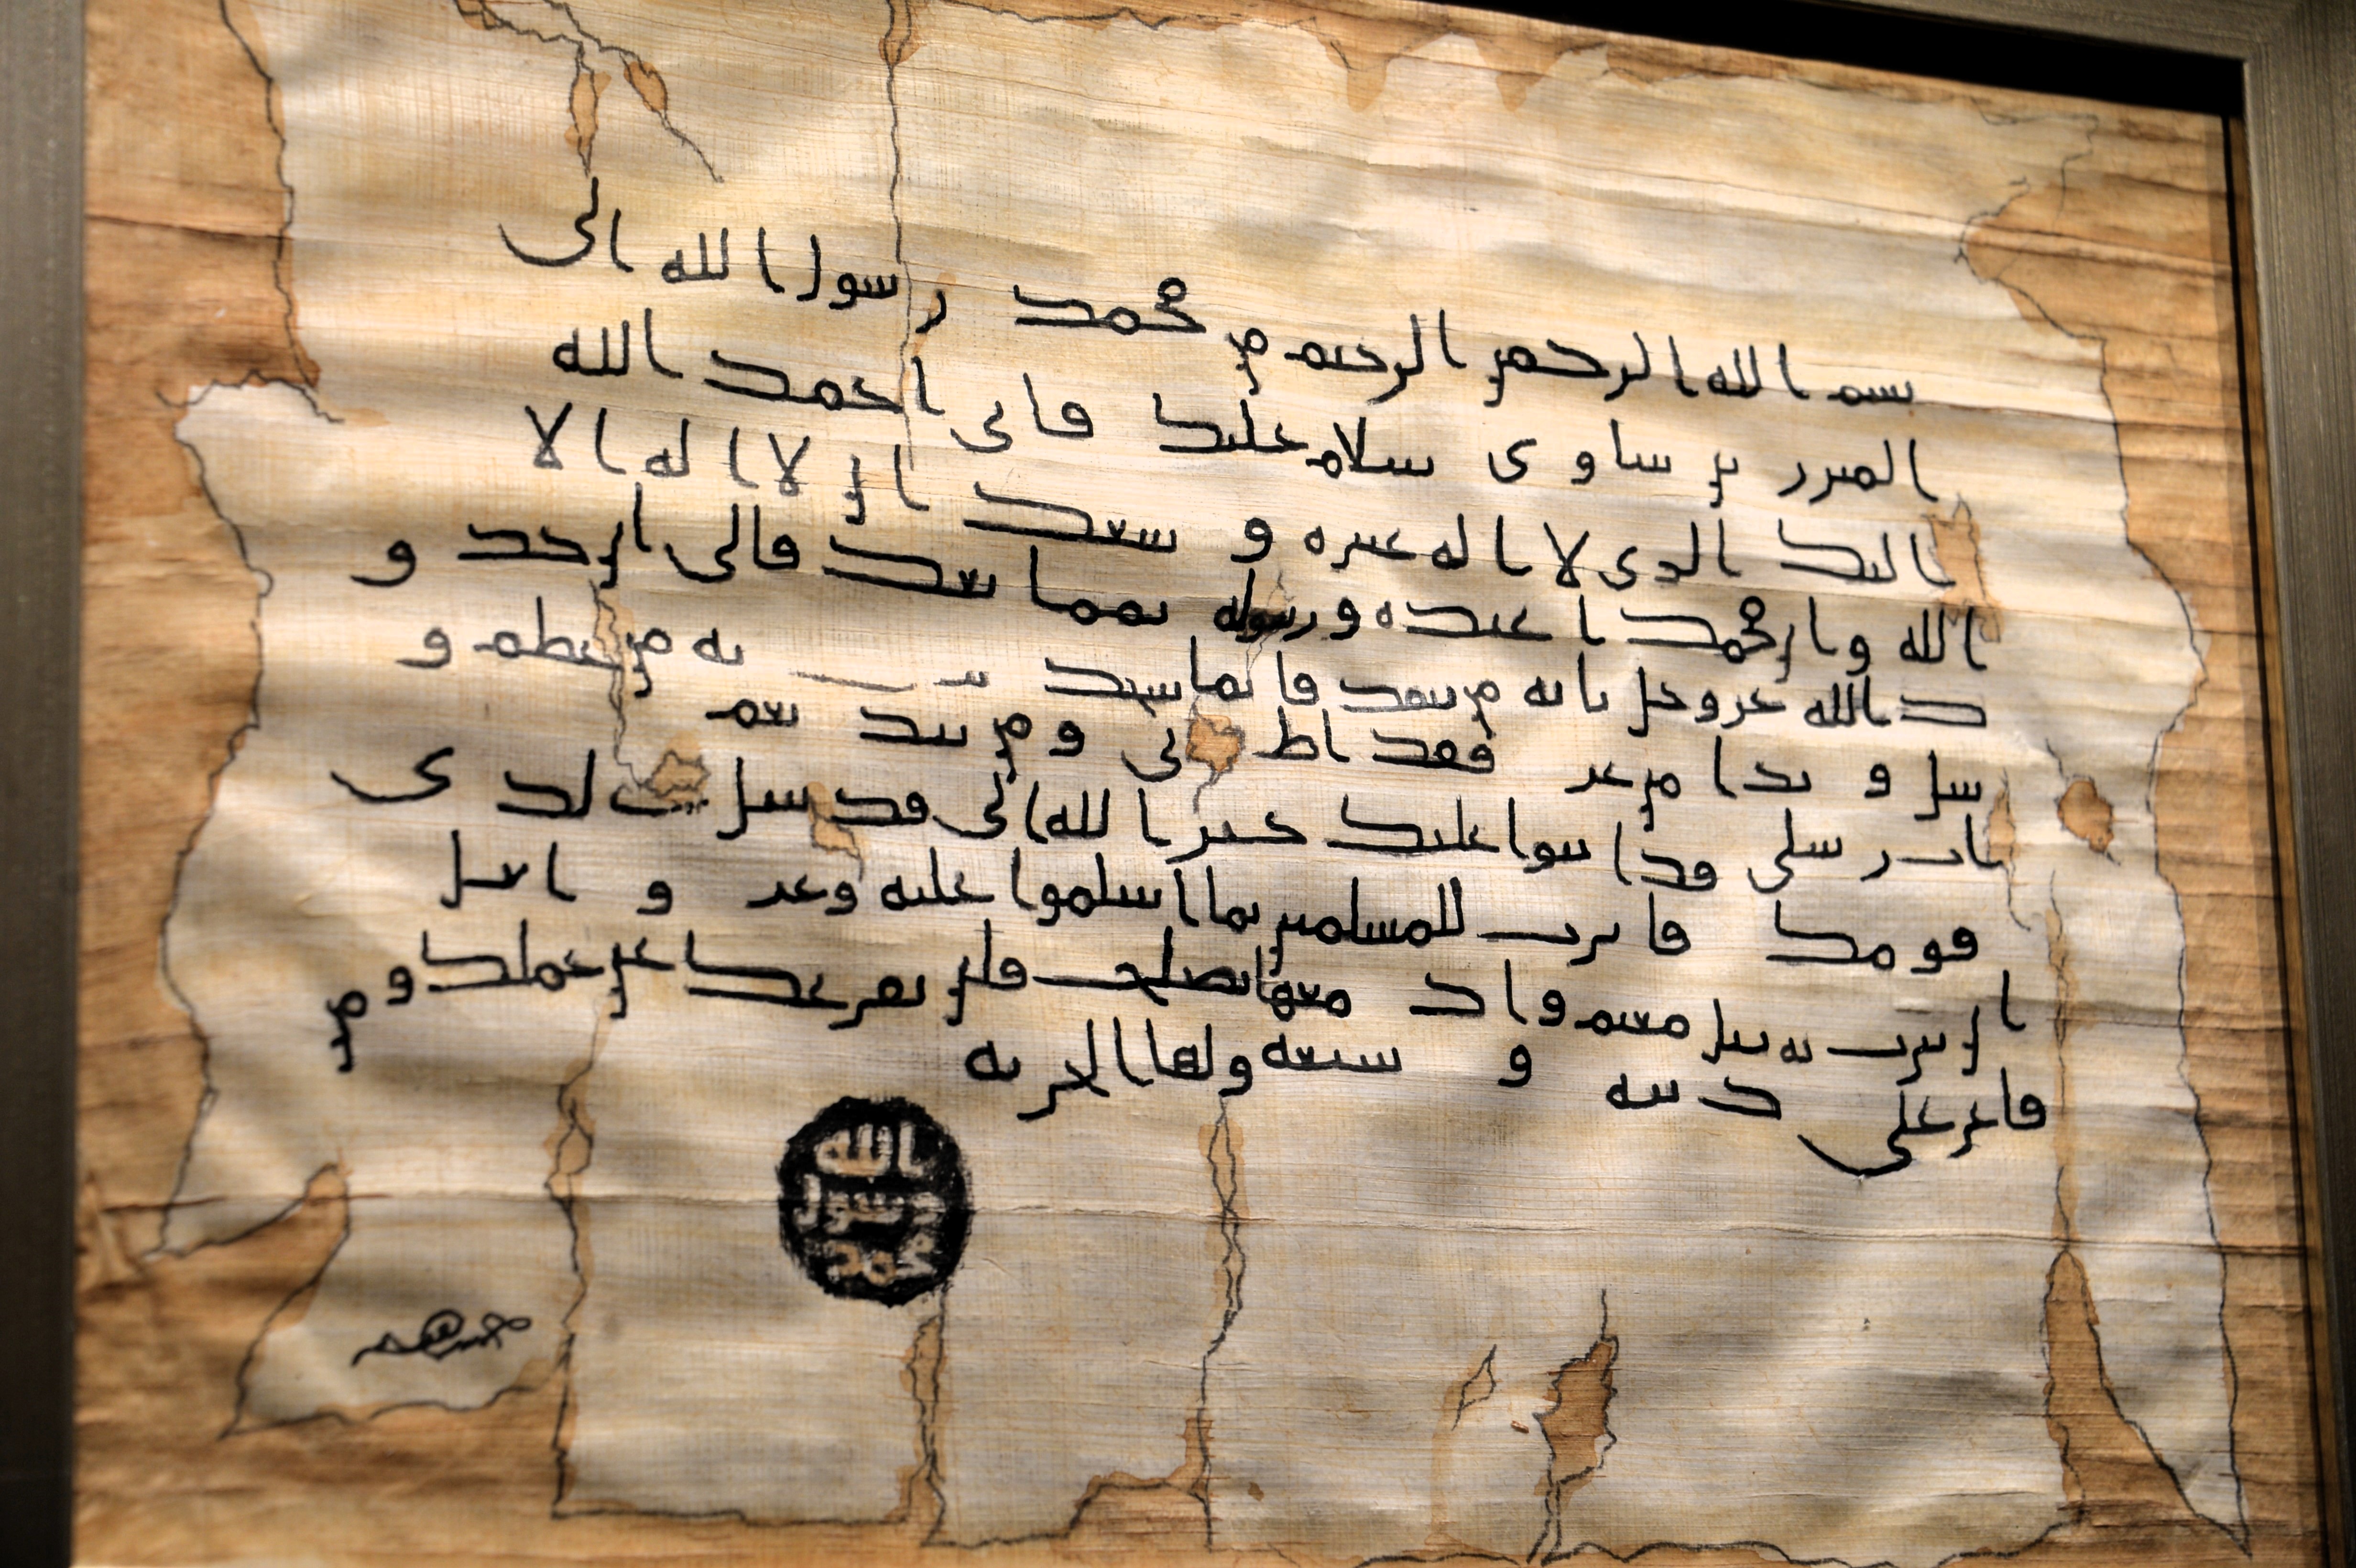 بسم الله الرحمن الرحيم من محمد رسول الله الى
المنذر بن ساوى سلام عليك فانى احمد الله
اليك الذى لا اله غيره و سهد ان لا اله الا
الله وان محمدا عبده ورسوله اما بعد فانى اذكر
ك الله عز وجل فانه من ينصح فانما ينصح لنفسه وانه من يطع و
سلى و يتبع امر هم فقد اطاعنى و من ينصح لهم
ان رسلى قد اثنوا عليك خير الله انى قد شفعتك فى
قومك فاترك للمسلمين ما اسلموا عليه وعفوت عن اهل
الذنوب فاقبل منهم وانك مهما تصلح فلن نعزلك عن عملك ومن
قام على يهوديته او مجوسيته فعليه الجزيه
الله
رسول
محمد